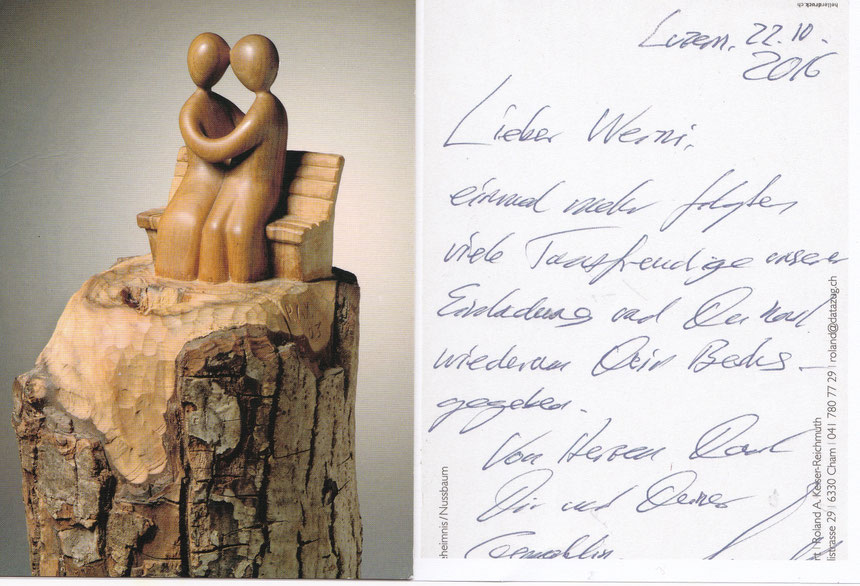 Luzern, 22.10.
2016
Lieber Werni,
einmal mehr folgten
viele Tanzfreudige unserer
Einladung und Du hast
wiederum Dein Bestes
gegeben.
Von Herzen Dank
Dir und Deiner
Gemahlin
heimnis/Nussbaum
rt | Roland A. Keiser-Reichmuth
listrasse 29 | 6330 Cham | 041 780 77 29 | roland@datazug.ch